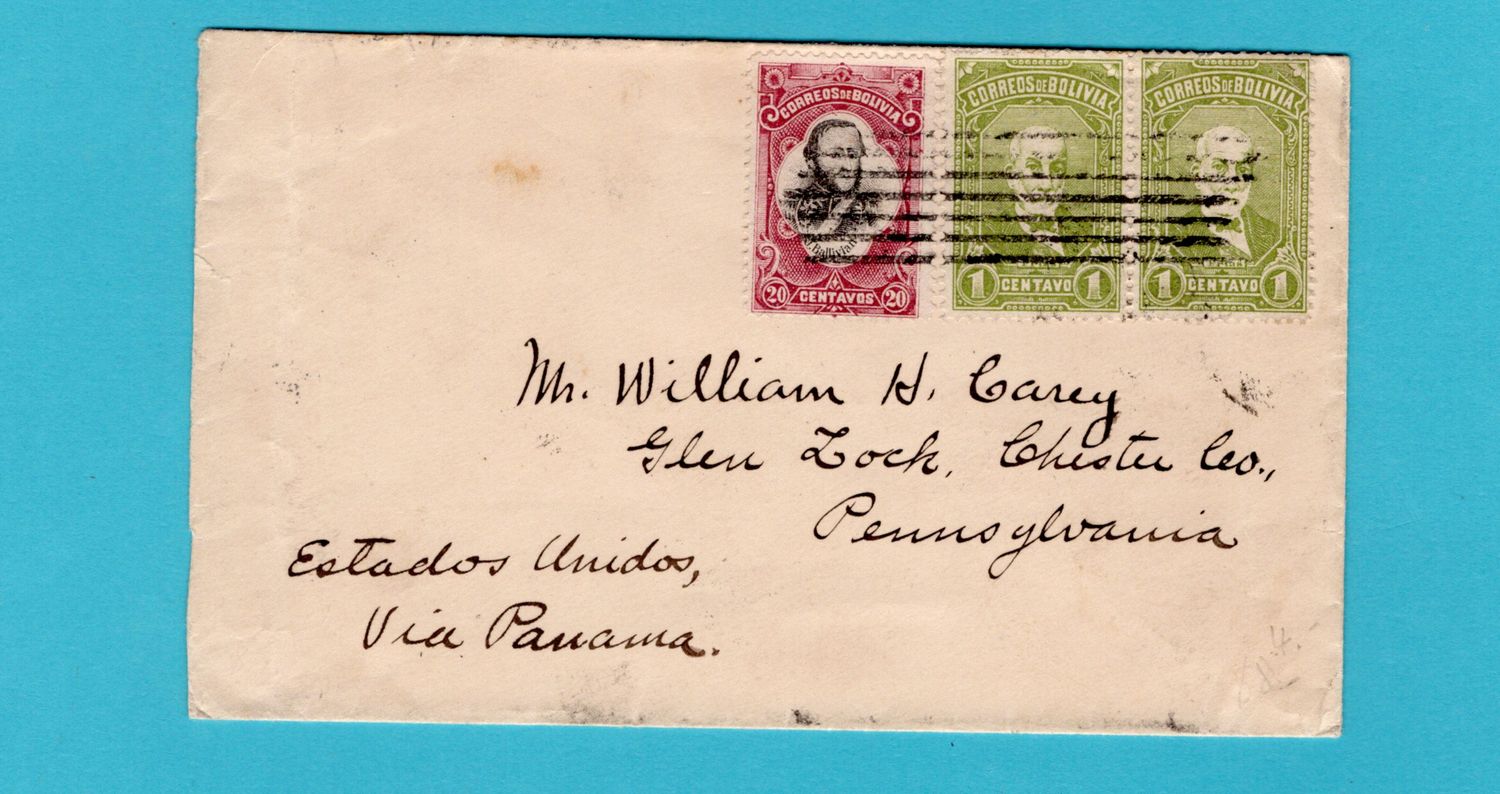 CORREOS DE BOLIVIA
Ballivian
20 CENTAVOS 20
CORREOS DE BOLIVIA
1 CENTAVO 1
CORREOS DE BOLIVIA
1 CENTAVO 1
Mr. William H. Carey
Glen Lock, Chester Co.,
Pennsylvania
Estados Unidos,
Via Panama.